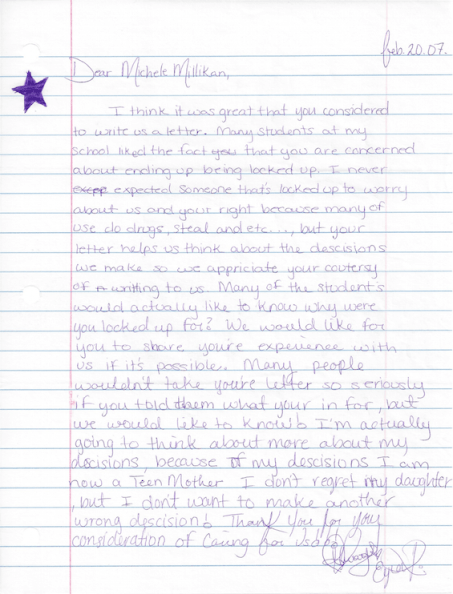 feb. 20. 07.
Dear Michele Millikan,
I think it was great that you considered
to write us a letter. Many students at my
school liked the fact you that you are concerned
about ending up being locked up. I never
expected someone that's locked up to worry
about us and your right because many of
use do drugs, steal and etc..., but your
letter helps us think about the descisions
we make so we appriciate your coutersy
of writting to us. Many of the student's
would actually like to know why were
you locked up for? We would like for
you to share you're experience with
us if it's possible. Many people
wouldn't take you're letter so seriously
if you told them what your in for, but
we would like to know! I'm actually
going to think about more about my
descisions, because of my descisions I am
now a Teen Mother I don't regret my daughter
, but I don't want to make another
wrong descision! Thank you for your
consideration of Caring for Us